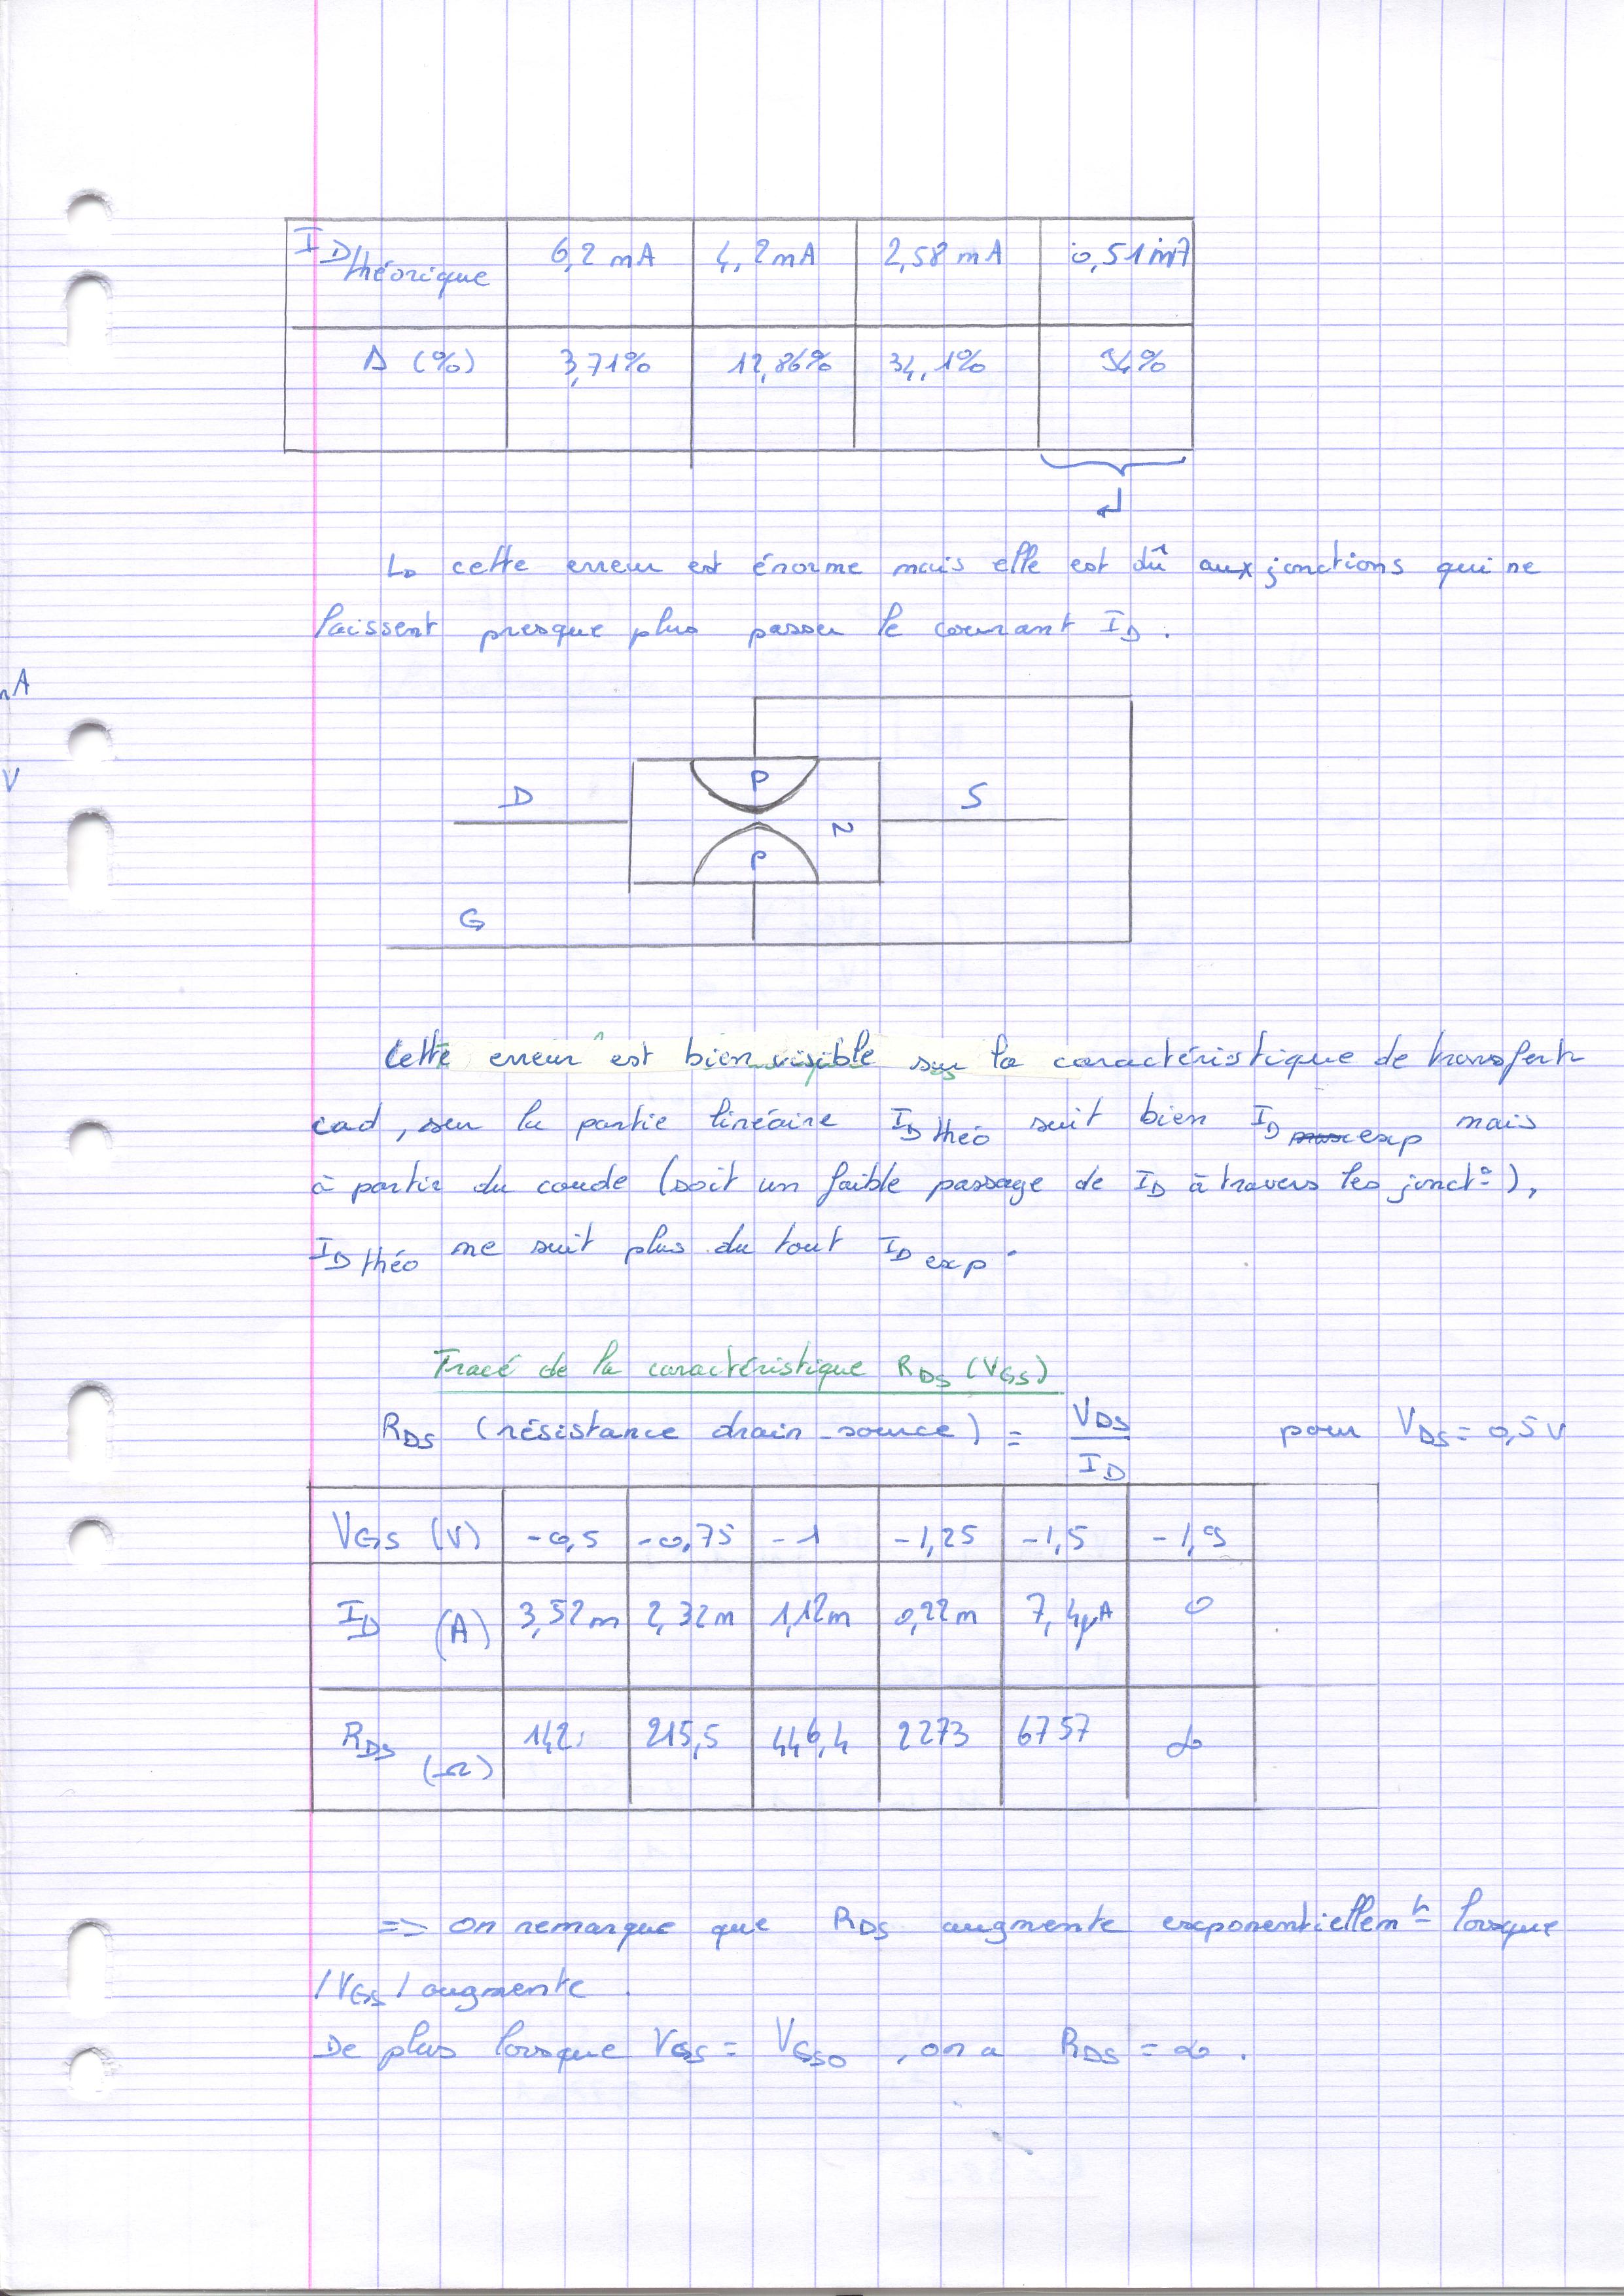 I_D théorique 6,2 mA 4,2 mA 2,58 mA 0,51 mA
Δ (%) 3,71% 12,86% 34,1% 94%
↳ cette erreur est énorme mais elle est dû aux jonctions qui ne
laissent presque plus passer le courant I_D.
nA
V
P
D S
N
P
G
Cette erreur est bien visible sur la caractéristique de transfert
cad, sur la partie linéaire I_D théo suit bien I_D exp mais
à partir du coude (soit un faible passage de I_D à travers les jonct°),
I_D théo ne suit plus du tout I_D exp.
Tracé de la caractéristique R_DS (V_GS)
R_DS (résistance drain-source) = V_DS / I_D pour V_DS = 0,5 V
V_GS (V) -0,5 -0,75 -1 -1,25 -1,5 -1,9
I_D (A) 3,52m 2,32m 1,12m 0,22m 7,4µA 0
R_DS (Ω) 142 215,5 446,4 2273 6757 ∞
=> on remarque que R_DS augmente exponentiellemt lorsque
|V_GS| augmente.
De plus lorsque V_GS = V_GS0, on a R_DS = ∞.